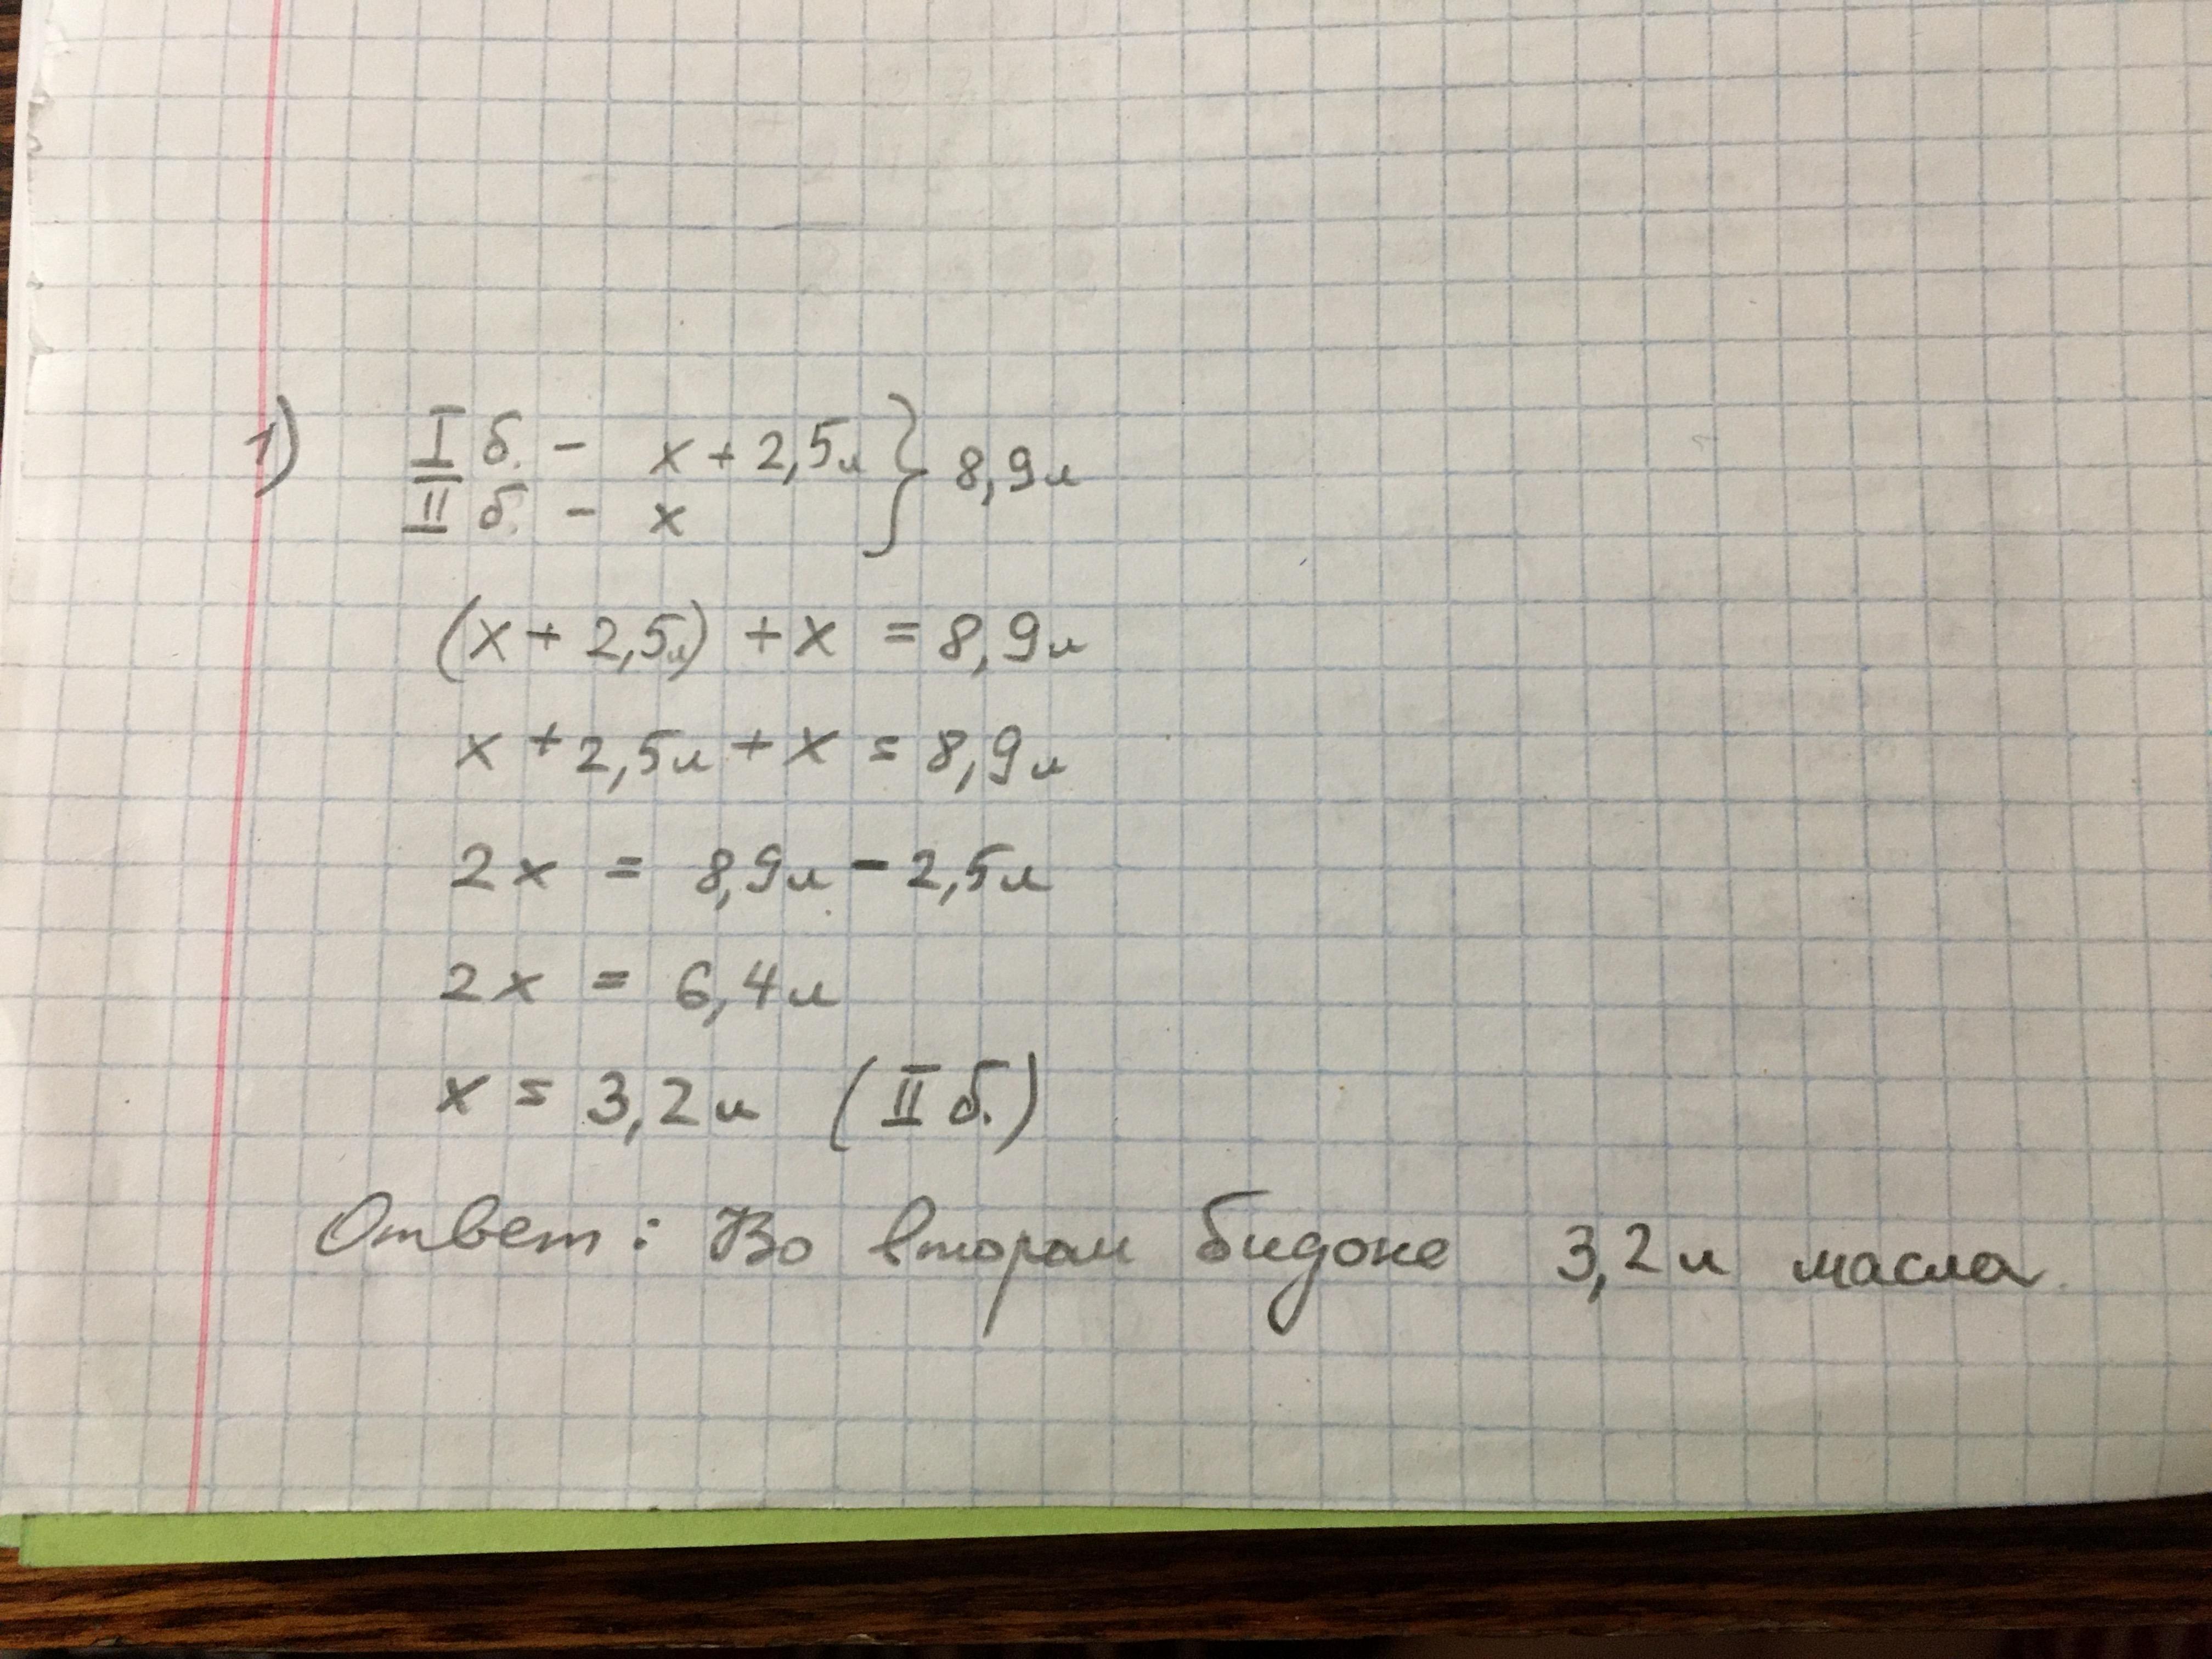 1) I б. - x + 2,5л } 8,9л
II б. - x
(x + 2,5л) + x = 8,9л
x + 2,5л + x = 8,9л
2x = 8,9л - 2,5л
2x = 6,4л
x = 3,2л (II б.)
Ответ: Во втором бидоне 3,2л масла.